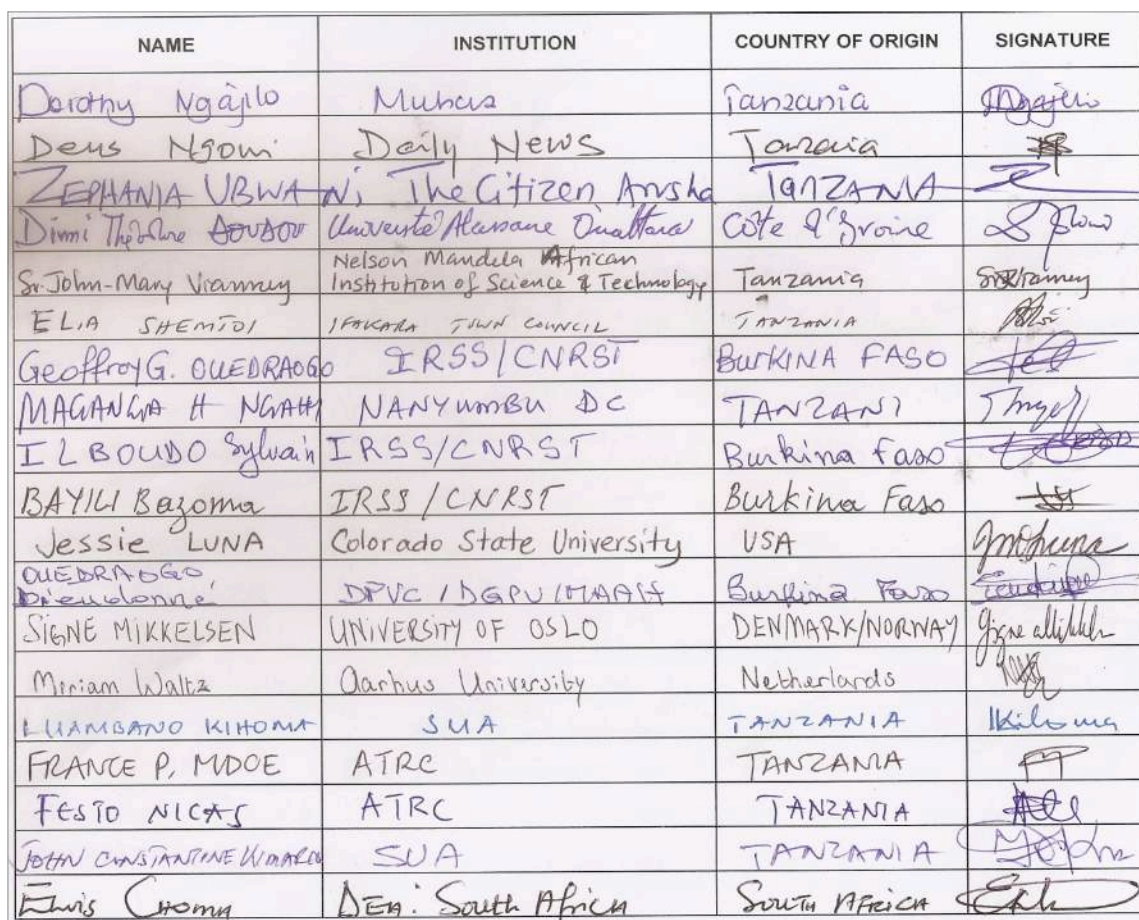 NAME INSTITUTION COUNTRY OF ORIGIN SIGNATURE
Dorothy Ngajilo Muhas Tanzania Ngajilo
Deus Ngowi Daily News Tanzania
ZEPHANIA UBWANI, The Citizen Arusha TANZANIA
Dimi Théodore Université Alassane Ouattara Côte d'Ivoire
Sr. John-Mary Vianney Nelson Mandela African Tanzania
Institution of Science & Technology
ELIA SHEMTOI IFAKARA TOWN COUNCIL TANZANIA
Geoffroy G. OUEDRAOGO IRSS/CNRST BURKINA FASO
MAGANGA H NANYUMBU DC TANZANI
ILBOUDO Sylvain IRSS/CNRST Burkina Faso
BAYILI Bazoma IRSS/CNRST Burkina Faso
Jessie LUNA Colorado State University USA
OUEDRAOGO,
Dieudonné DPVC/DGPV/MAAH Burkina Faso
SIGNE MIKKELSEN UNIVERSITY OF OSLO DENMARK/NORWAY
Miriam Waltz Aarhus University Netherlands
LUAMBANO KIHOMA SUA TANZANIA Kihoma
FRANCE P. MDOE ATRC TANZANIA
FESTO NICAS ATRC TANZANIA
JOHN CONSTANTINE KIMARO SUA TANZANIA
Elvis CHOMA DEA: South Africa SOUTH AFRICA